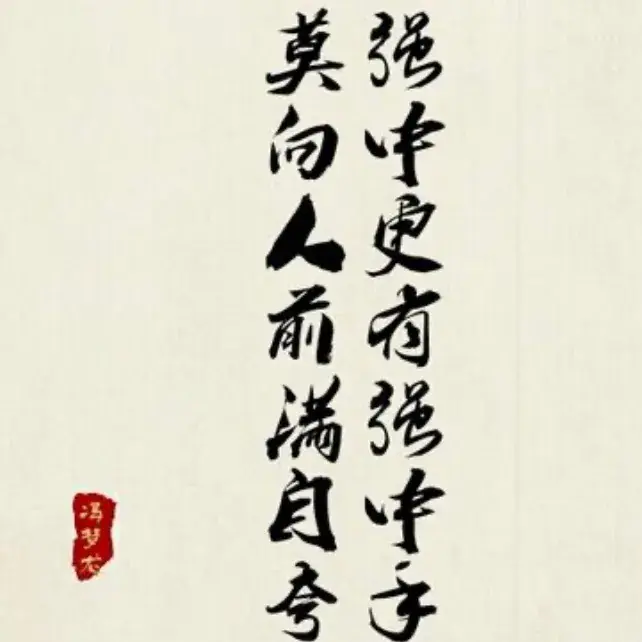 强中更有强中手
莫向人前满自夸
冯梦龙